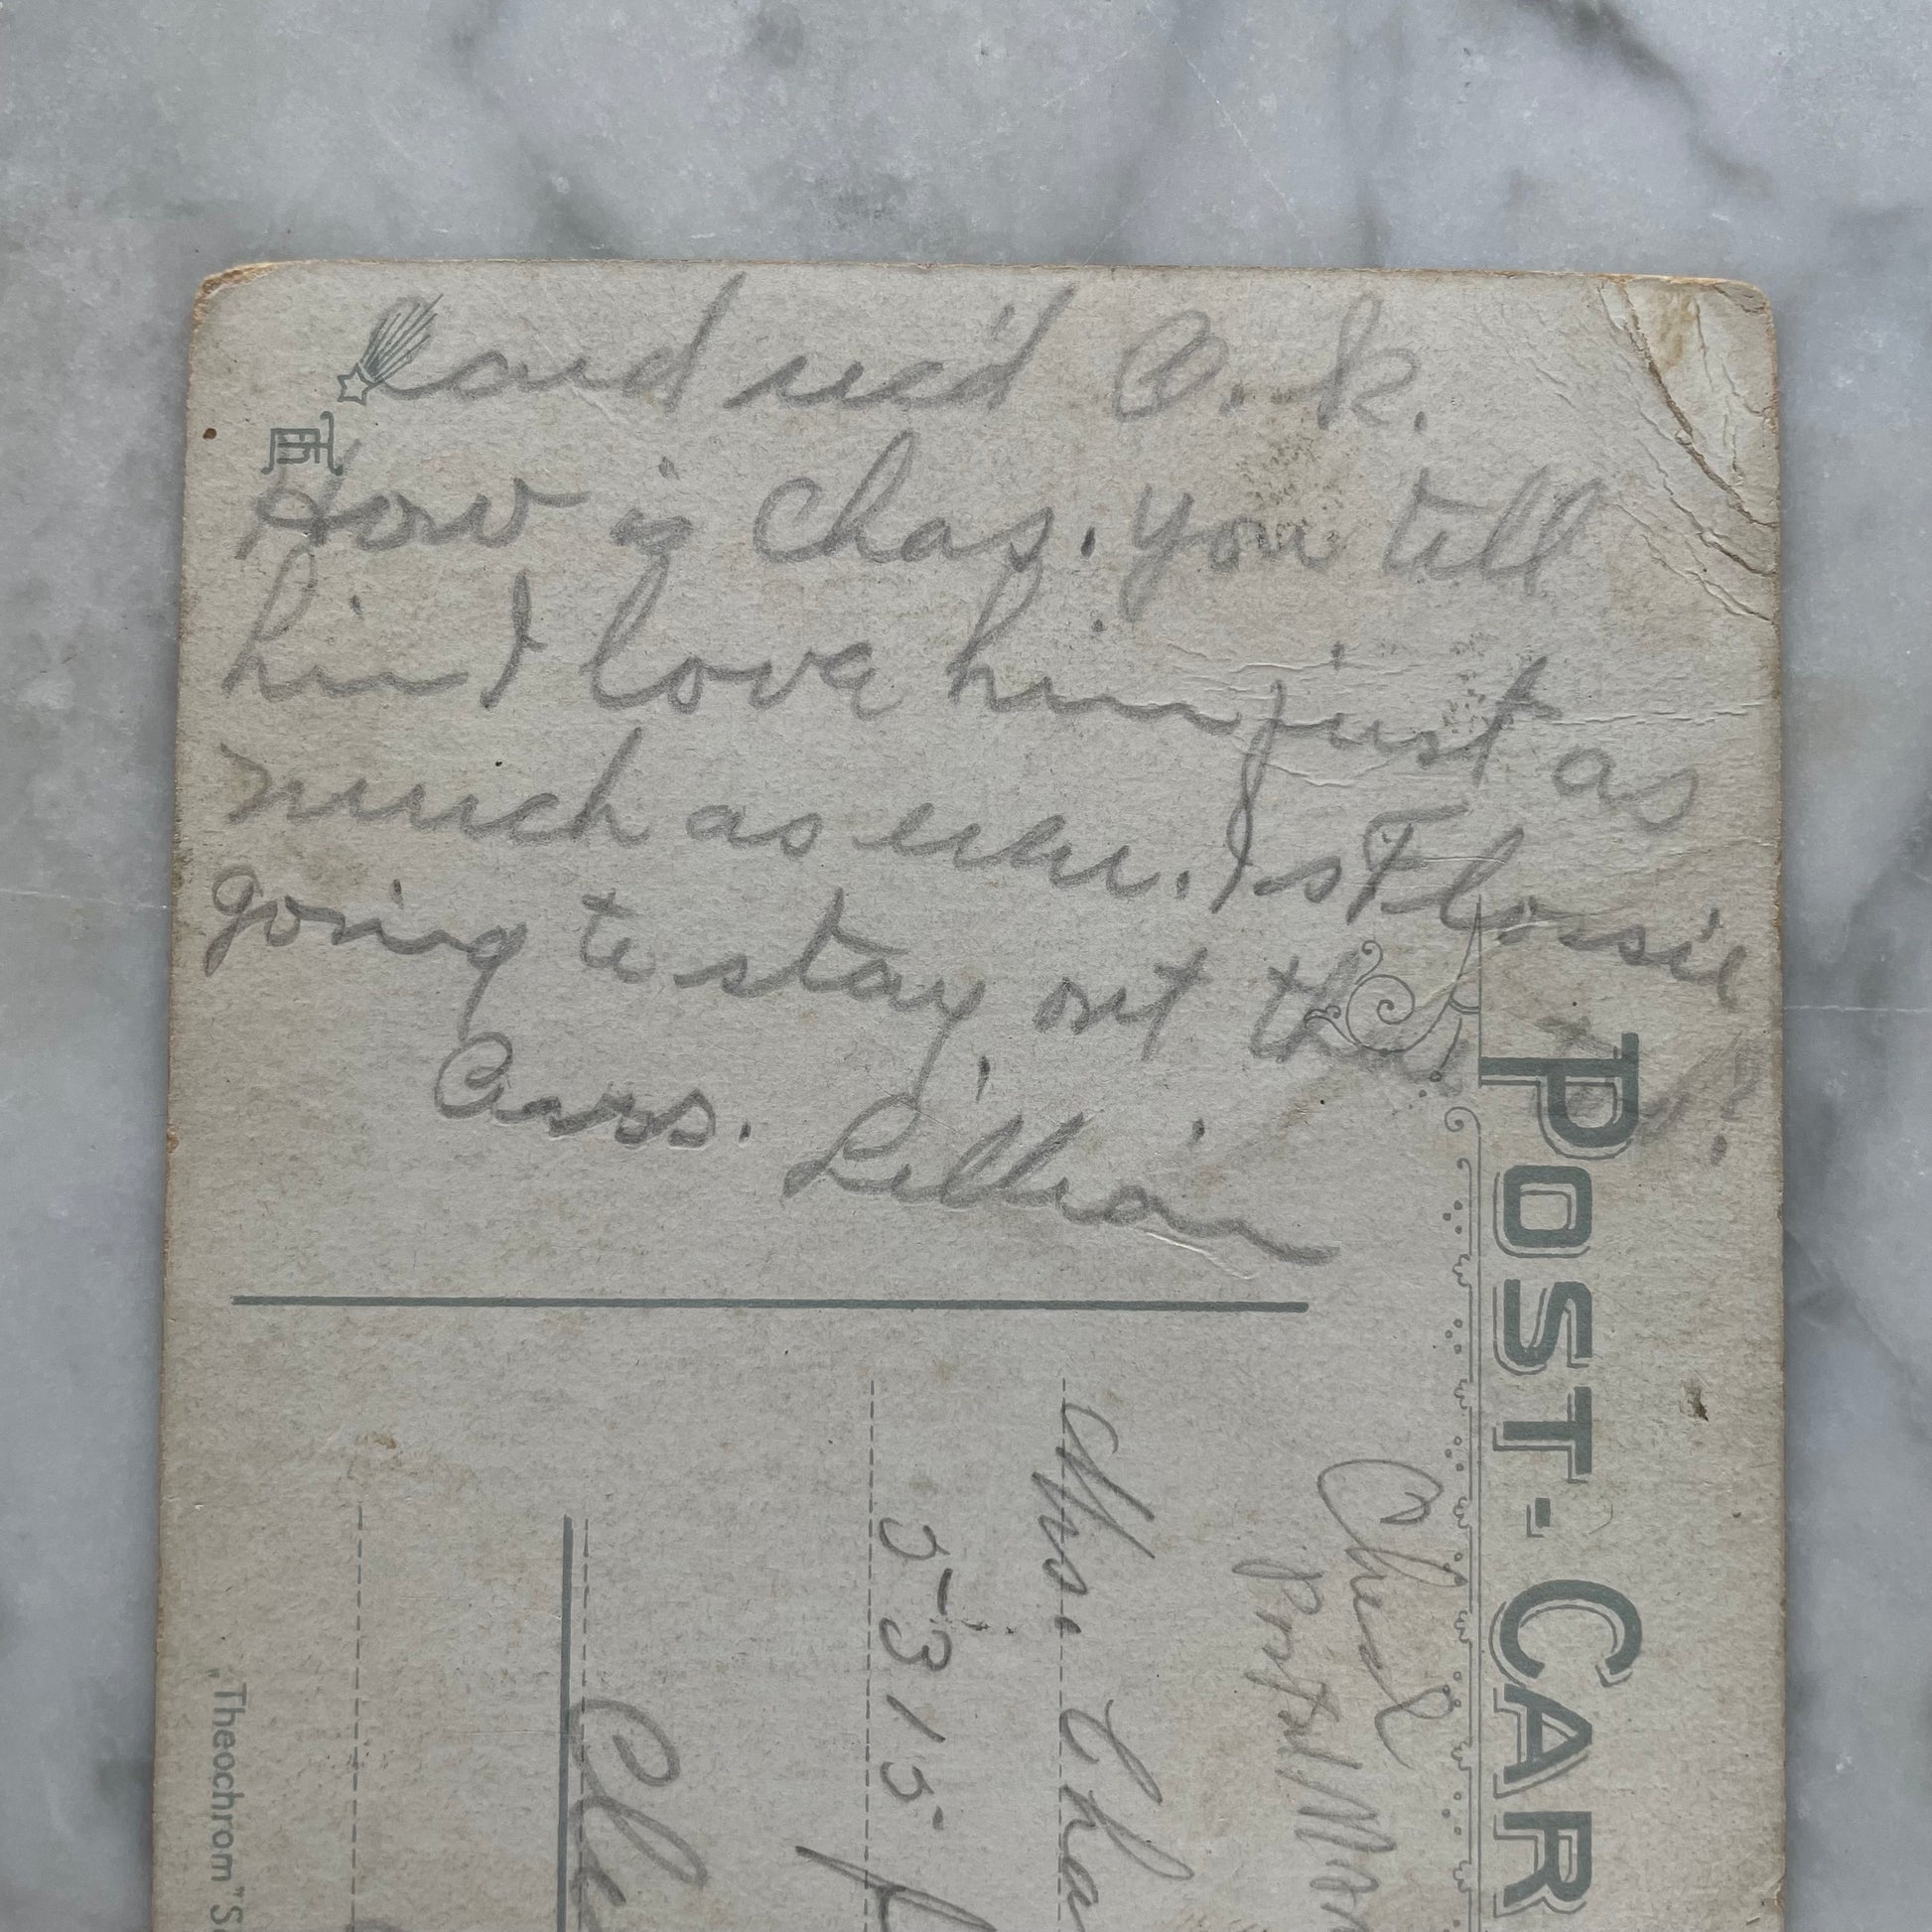 Card rec'd O.K.
How is Chas. you tell
him I love him just as
much as ever. Is Flossie
going to stay out
Lillian
POST-CAR
Mrs. Cha
5315
"Theochrom" S